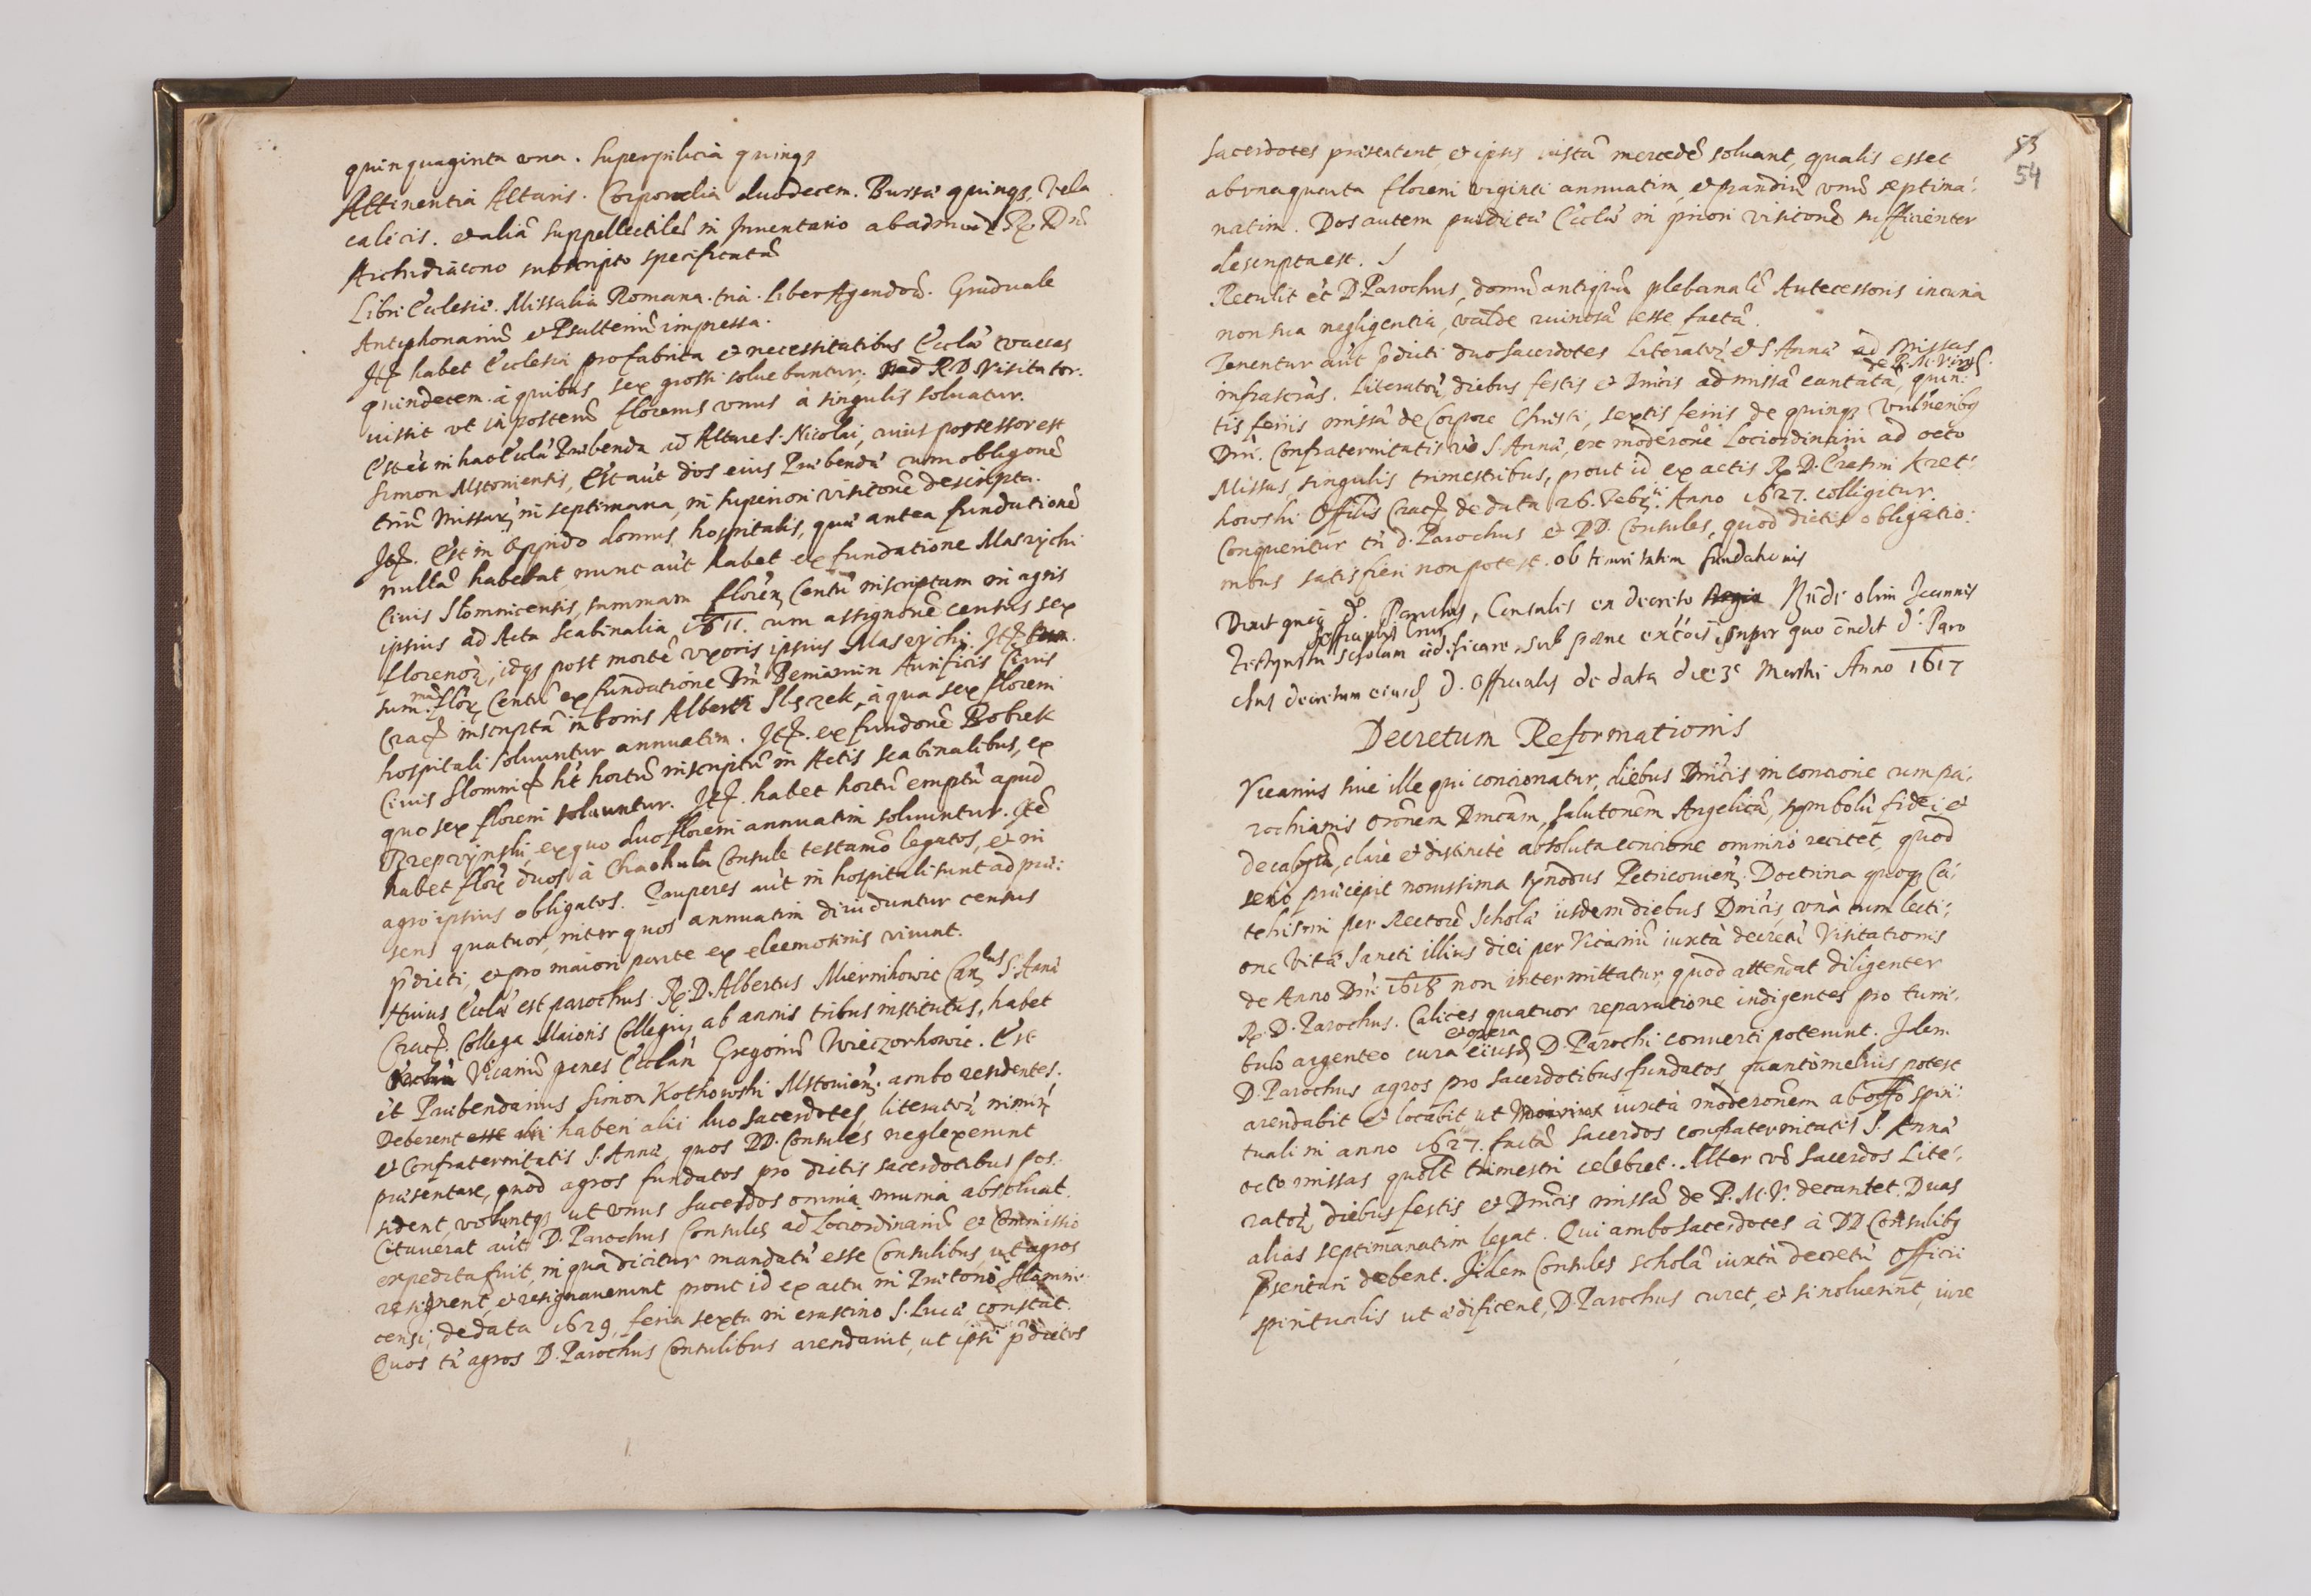 quinquaginta una. Superpilicia quinqȝ
Attinentia Altaris. Corporalia duodecem. Bursæ quinqȝ, Vela
calicis. et aliã suppellectilẽ in Inventario ab admod R. Dno
Archidiacono subscripto specificatã
Libri Ecclesiæ. Missalia Romana. tria. liber Agendorũ. Graduale
Antiphonariũ et Psalteriũ impressa.
Itẽ habet Ecclesia pro fabrica et necessitatibus Ecclæ vaccas
quindecem. à quibus sex grossi soluebantur; sed R D Visitator.
iussit ut in posterũ florenus vnus à singulis soluatur.
Est et in hac Ecclã Præbenda ad Altare S. Nicolai, cuius possessor est
Simon Mstoniensis, Est aũt dos eius Præbendæ cum obligone
triũ Missarũ in septimana, in superiori visitone descripta.
Itẽ. Est in Oppido domus hospitalis, quæ antea fundationẽ
nullã habebat, nunc aũt habet ex fundatione Masrychi
Civis Słomnicensis, summam floren Centũ inscriptam in agris
ipsius ad Acta Scabinalia 1611. cum assignone census sex
florenorũ, idqȝ post mortẽ vxoris ipsius Masrychi. Itẽ
summã flor Centũ ex fundatione Dni Beniamin Aurificis Civis
Crac inscriptã in bonis Alberti Slęzek, a qua sex floreni
hospitali soluuntur annuatim. Itẽ. ex fundone Bobrek
Civis Słomnic ht hortũ inscriptũ in Actis scabinalibus, ex
quo sex floreni soluuntur. Itẽ. habet hortũ emptũ apud
ex quo duo floreni annuatim soluuntur. Itẽ
habet flor duos à Consule testamto legatos, et in
agro ipsius obligatos. Pauperes aũt in hospitali sunt ad præ:
sens quatuor, inter quos annuatim diuiduntur census
pdicti, et pro maiori parte ex eleemosinis viuunt.
Huius Ecclæ est parochus R. D. Albertus Miernikowic Canlus S. Annæ
Crac. Collega Maioris Collegij ab annis tribus institutus, habet
Vicariũ penes Ecclam Gregoriũ Wieczorkowic. Est
et Præbendarius Simon Kotkowski Mstonien. ambo residentes.
Deberent esse haberi alii duo sacerdotes, literatorũ nimirũ
et Confraternitatis S. Annæ, quos DD. Consules neglexerunt
præsentare, quod agros fundatos pro dictis sacerdotibus pos:
sident, voluntqȝ ut vnus sacerdos omnia munia absoluat.
Citauerat aũt D. Parochus Consules ad Lociordinariũ et Commissio
expedita fuit, in qua dicitur mandatũ esse Consulibus, ut agros
resignent, et resignauerunt prout id ex actu in Prætorio Słomni:
censi, de data 1629, feria sexta in crastino S. Lucæ constat.
Quos tñ agros D. Parochus Consulibus arendauit, ut ipsi pdictos
53
54
sacerdotes præsentent, et ipsis iustã mercedẽ soluant, qualis esset
ab vnaquauta floreni viginti annuatim, et prandiũ vnũ septima:
natim. Dos autem prædictæ Ecclæ in priori visitonẽ sufficienter
descripta est.
Retulit et D. Parochus, domũ antiquã plebanalẽ Antecessoris incuria
non sua negligentia, valde ruinosã esse factã.
Tenentur aũt pdicti duo sacerdotes Literatorũ et S. Annæ ad Missas
infrascras. Literatorũ, diebus festis et Dnicis ad missã cantatã de B. M. Virg., quin:
tis feriis missã de Corpore Christi, sextis feriis de quinqȝ Vulneribȝ
Dni. Confraternitatis vo S. Annæ, ex moderone Lociordinarii ad octo
Missas, singulis trimestribus, prout id ex actis R. D. Erasmi Kret:
kowski Offilis Crac, de data 26. Febrii. Anno 1627. colligitur.
Conqueritur tñ d. Parochus et DD. Consules, quod dictis obligatio:
nibus satisfieri non potest. ob tenuitatem fundationis
Dixit quoqȝ D. Parochus, Consules ex decreto Rndi olim Joannis
Officialis Crac
scholam ædificare, sub pæna excois super quo D. Paro
chus decretum eiusd D. Officialis de data die 3 Martii Anno 1617
Decretum Reformationis
Vicarius siue ille qui concionatur, diebus Dnicis in concione cum pa:
rochianis Oronem Dnicam, Salutonem Angelicã, symbolũ fidei et
decalogũ, clare et distincte absoluta concione omnino recitet, quod
serio præcepit nouissima synodus Petricouien. Doctrina quoqȝ Ca:
tehismi per Rectorẽ Scholæ iisdem diebus Dnicis, vnà cum lecti:
one Vitæ Sancti illius diei per Vicariũ iuxtà decretũ Visitationis
de Anno Dni 1618 non intermittatur, quod attendat diligenter
R. D. Parochus. Calices quatuor reparatione indigentes pro turri:
bulo argenteo cura et opera eiusd D. Parochi conuerti poterunt. Idem
D. Parochus agros pro sacerdotibus fundatos, quantò melius potest
arendabit et locabit ut iuxtà moderonem ab offo spiri:
tuali in anno 1627. factã sacerdos confraternitatis S. Annæ
octo missas quolt trimestri celebret. Alter vo sacerdos Lite:
ratorũ, diebus festis et Dnicis missã de B. M. V. decantet. Duas
alias septimanatim legat. Qui ambo sacerdotes à DD Consulibȝ
psentari debent. Jidem Consules scholã iuxtà decretũ Officii
spiritualis ut ædificent, D. Parochus curet, et si noluerint, iure